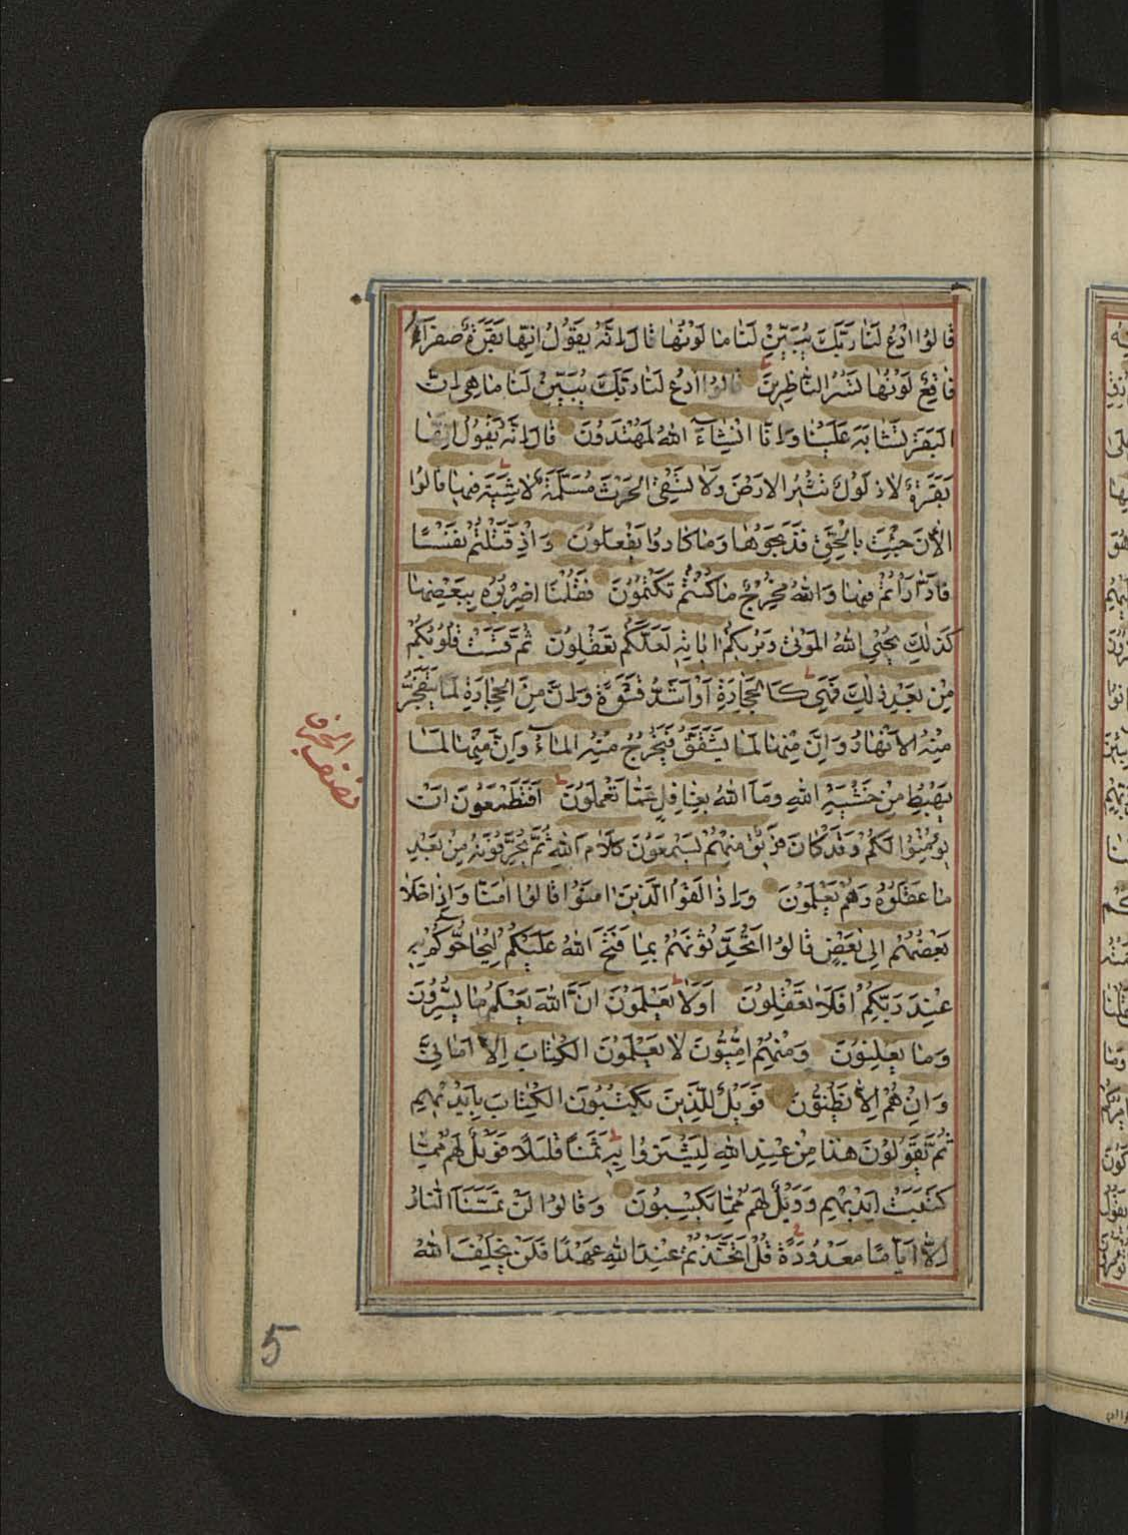 قَالُوا ادْعُ لَنَا رَبَّكَ يُبَيِّنْ لَنَا مَا لَوْنُهَا قَالَ اِنَّهُ يَقُولُ اِنَّهَا بَقَرَةٌ صَفْرَآءُ
فَاقِعٌ لَوْنُهَا تَسُرُّ النَّاظِرِينَ قَالُوا ادْعُ لَنَا رَبَّكَ يُبَيِّنْ لَنَا مَا هِىَ اِنَّ
الْبَقَرَ تَشَابَهَ عَلَيْنَا وَاِنَّا اِنْشَآءَ اللهُ لَمُهْتَدُونَ قَالَ اِنَّهُ يَقُولُ اِنَّهَا
بَقَرَةٌ لَا ذَلُولٌ تُثِيرُ الْاَرْضَ وَلَا تَسْقِى الْحَرْثَ مُسَلَّمَةٌ لَا شِيَةَ فِيهَا قَالُوا
الْاٰنَ جِئْتَ بِالْحَقِّ فَذَبَحُوهَا وَمَا كَادُوا يَفْعَلُونَ وَاِذْ قَتَلْتُمْ نَفْسًا
فَادّٰرَأْتُمْ فِيهَا وَاللهُ مُخْرِجٌ مَا كُنْتُمْ تَكْتُمُونَ فَقُلْنَا اضْرِبُوهُ بِبَعْضِهَا
كَذٰلِكَ يُحْيِى اللهُ الْمَوْتٰى وَيُرِيكُمْ اٰيَاتِهِ لَعَلَّكُمْ تَعْقِلُونَ ثُمَّ قَسَتْ قُلُوبُكُمْ
مِنْ بَعْدِ ذٰلِكَ فَهِىَ كَالْحِجَارَةِ اَوْ اَشَدُّ قَسْوَةً وَاِنَّ مِنَ الْحِجَارَةِ لَمَا يَتَفَجَّرُ
مِنْهُ الْاَنْهَارُ وَاِنَّ مِنْهَا لَمَا يَشَّقَّقُ فَيَخْرُجُ مِنْهُ الْمَآءُ وَاِنَّ مِنْهَا لَمَا
يَهْبِطُ مِنْ خَشْيَةِ اللهِ وَمَا اللهُ بِغَافِلٍ عَمَّا تَعْمَلُونَ اَفَتَطْمَعُونَ اَنْ
يُؤْمِنُوا لَكُمْ وَقَدْ كَانَ فَرِيقٌ مِنْهُمْ يَسْمَعُونَ كَلَامَ اللهِ ثُمَّ يُحَرِّفُونَهُ مِنْ بَعْدِ
مَا عَقَلُوهُ وَهُمْ يَعْلَمُونَ وَاِذَا لَقُوا الَّذِينَ اٰمَنُوا قَالُوا اٰمَنَّا وَاِذَا خَلَا
بَعْضُهُمْ اِلٰى بَعْضٍ قَالُوا اَتُحَدِّثُونَهُمْ بِمَا فَتَحَ اللهُ عَلَيْكُمْ لِيُحَاجُّوكُمْ بِهِ
عِنْدَ رَبِّكُمْ اَفَلَا تَعْقِلُونَ اَوَلَا يَعْلَمُونَ اَنَّ اللهَ يَعْلَمُ مَا يُسِرُّونَ
وَمَا يُعْلِنُونَ وَمِنْهُمْ اُمِّيُّونَ لَا يَعْلَمُونَ الْكِتَابَ اِلَّا اَمَانِىَّ
وَاِنْ هُمْ اِلَّا يَظُنُّونَ فَوَيْلٌ لِلَّذِينَ يَكْتُبُونَ الْكِتَابَ بِاَيْدِيهِمْ
ثُمَّ يَقُولُونَ هٰذَا مِنْ عِنْدِ اللهِ لِيَشْتَرُوا بِهِ ثَمَنًا قَلِيلًا فَوَيْلٌ لَهُمْ مِمَّا
كَتَبَتْ اَيْدِيهِمْ وَوَيْلٌ لَهُمْ مِمَّا يَكْسِبُونَ وَقَالُوا لَنْ تَمَسَّنَا النَّارُ
اِلَّا اَيَّامًا مَعْدُودَةً قُلْ اَتَّخَذْتُمْ عِنْدَ اللهِ عَهْدًا فَلَنْ يُخْلِفَ اللهُ
نصف الحزب
5